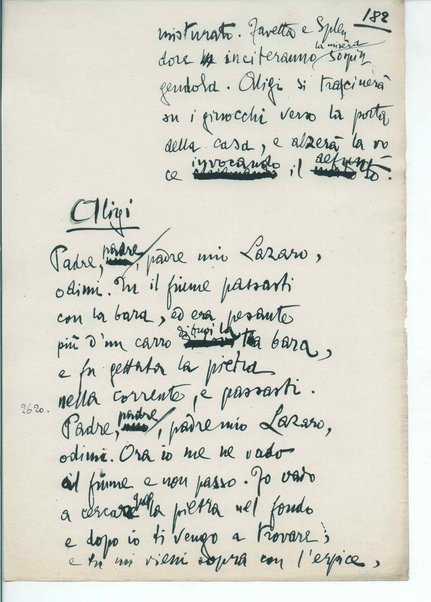 188
misturato. Favetta e Splen
dore inciteranno la misera sospin
gendola. Aligi si trascinerà
su i ginocchi verso la porta
della casa, e alzerà la vo
ce invocando il defunto.
Aligi
Padre, padre, padre mio Lazaro,
odimi. Tu il fiume passasti
con la bara, ed era pesante
più d'un carro di buoi la tua bara,
e fu gettata la pietra
nella corrente, e passasti.
2620.
Padre, padre, padre mio Lazaro,
odimi. Ora io me ne vado
al fiume e non passo. Io vado
a cercare la pietra nel fondo
e dopo io ti vengo a trovare;
e tu mi vieni sopra con l'erpice,